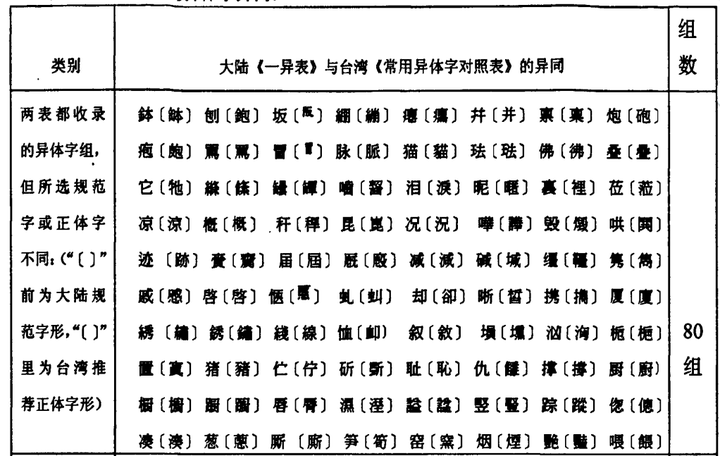 组
数
类别 大陆《一异表》与台湾《常用异体字对照表》的异同
两表都收录
的异体字组，
但所选规范
字或正体字
不同：（“〔〕”
前为大陆规
范字形，“〔〕”
里为台湾推
荐正体字形）
钵〔缽〕 刨〔鉋〕 坂〔阪〕 繃〔繃〕 并〔并〕 炮〔砲〕
疱〔皰〕 罵〔罵〕 冒〔冒〕 脉〔脈〕 猫〔貓〕 珐〔琺〕 佛〔彿〕 叠〔疊〕
它〔牠〕 縧〔絛〕 啮〔齧〕 泪〔淚〕 昵〔暱〕 裏〔裡〕 莅〔蒞〕
凉〔涼〕 概〔概〕 秆〔稈〕 昆〔崑〕 况〔況〕 嘩〔譁〕 毁〔燬〕 哄〔鬨〕
迹〔跡〕 賫〔齎〕 届〔屆〕 厩〔廄〕 减〔減〕 碱〔堿〕 繮〔韁〕 隽〔雋〕
戚〔慼〕 啓〔啟〕 愜〔愜〕 虬〔虯〕 却〔卻〕 晰〔皙〕 携〔攜〕 厦〔廈〕
綉〔繡〕 銹〔鏽〕 綫〔線〕 恤〔卹〕 叙〔敘〕 塤〔壎〕 汹〔洶〕 栀〔梔〕
置〔寘〕 猪〔豬〕 伫〔佇〕 斫〔斲〕 耻〔恥〕 仇〔讎〕 撑〔撐〕 厨〔廚〕
橱〔櫥〕 蹰〔躕〕 唇〔脣〕 濕〔溼〕 謚〔諡〕 竪〔豎〕 踪〔蹤〕 偬〔傯〕
凑〔湊〕 葱〔蔥〕 厮〔廝〕 笋〔筍〕 窑〔窯〕 烟〔煙〕 艷〔豔〕 喂〔餵〕
80
组